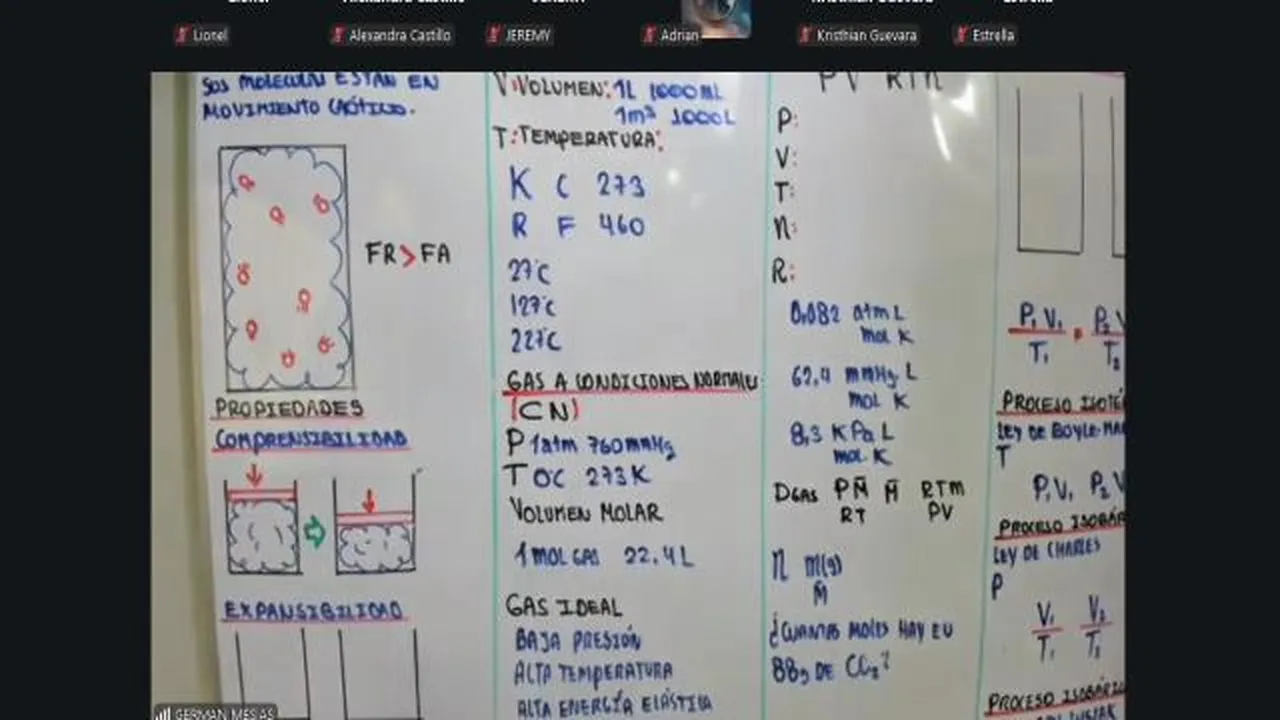 Lionel
Alexandra Castillo
JEREMY
Adrian
Kristhian Guevara
Estrella
SUS MOLECULAS ESTAN EN
MOVIMIENTO CAÓTICO.
FR>FA
PROPIEDADES
COMPRENSIBILIDAD
EXPANSIBILIDAD
V:VOLUMEN: 1L 1000mL
1m³ 1000L
T:TEMPERATURA:
K C 273
R F 460
27°C
127°C
227°C
GAS A CONDICIONES NORMALES
(CN)
P 1atm 760mmHg
T 0°C 273K
VOLUMEN MOLAR
1 MOL GAS 22.4L
GAS IDEAL
BAJA PRESIÓN
ALTA TEMPERATURA
ALTA ENERGÍA ELÁSTICA
PV RTn
P:
V:
T:
n:
R:
0,082 atm L
mol K
62,4 mmHg L
mol K
8,3 KPa L
mol K
DGAS PM̄ M̄ RTm
RT PV
n m(g)
M̄
¿CUANTAS MOLES HAY EN
88g DE CO₂?
P₁ V₁ P₂ V
T₁ T₂
PROCESO ISOTÉ
LEY DE BOYLE-MA
T
P₁V₁ P₂ V
PROCESO ISOBÁR
LEY DE CHARLES
P
V₁ V₂
T₁ T₂
PROCESO ISOBÁRIC
GERMAN MESIAS